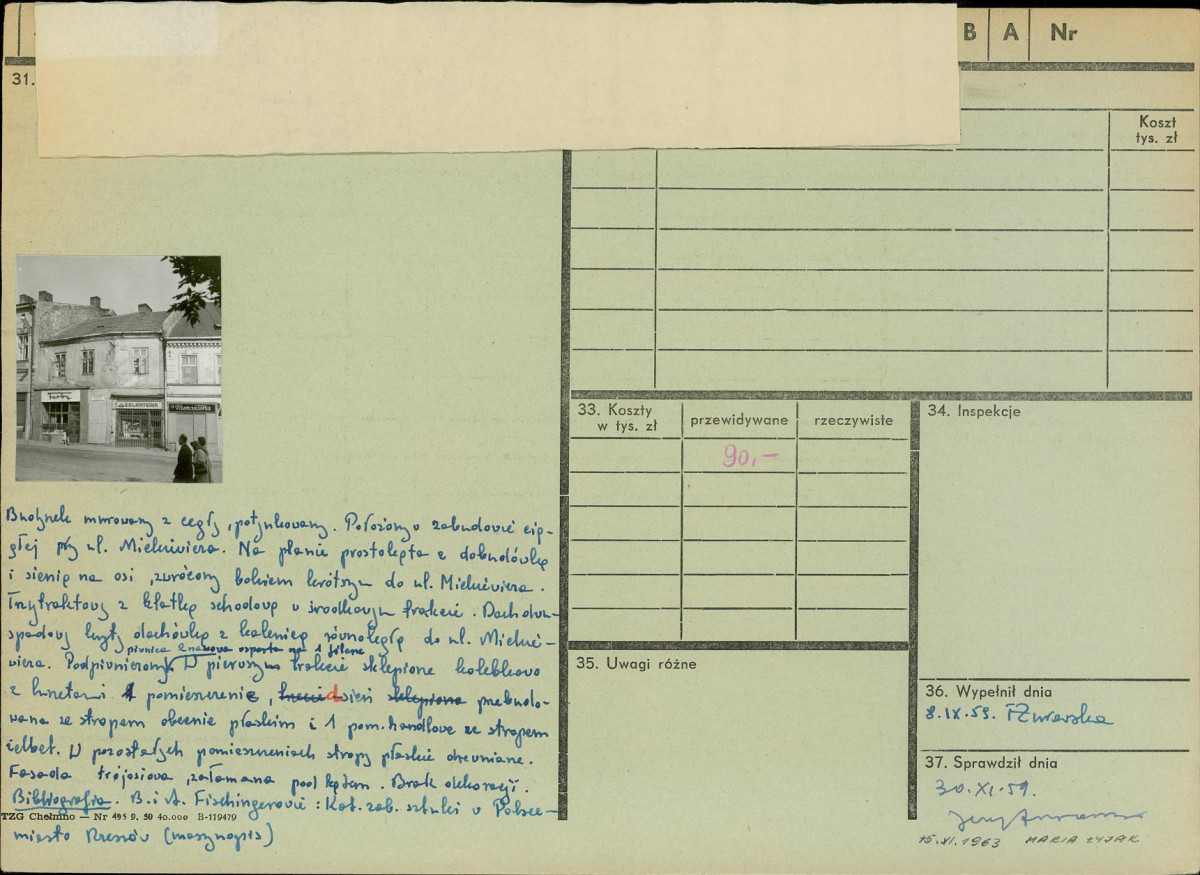 B A Nr
31.
Koszt
tys. zł
33. Koszty
w tys. zł
przewidywane
rzeczywiste
90,-
34. Inspekcje
35. Uwagi różne
36. Wypełnił dnia
8.IX.59.
37. Sprawdził dnia
30.XI.59.
15.XI.1963 MARIA ŁYJAK
Budynek murowany z cegły, potynkowany. Położony w zabudowie cią-
głej przy ul. Mickiewicza. Na planie prostokąta z dobudówką
i sienią na osi, zwrócony bokiem krótszym do ul. Mickiewicza.
Trzytraktowy z klatką schodową w środkowym trakcie. Dach dwu-
spadowy kryty dachówką z kalenicą równoległą do ul. Mickie-
piwnica 2 nawowa wsparta na 1 filarze
wicza. Podpiwniczony. W pierwszym trakcie sklepione kolebkowo
z lunetami 1 pomieszczenie, sień sklepiona przebudo-
wana ze stropem obecnie płaskim i 1 pom. handlowe ze stropem
żelbet. W pozostałych pomieszczeniach stropy płaskie drewniane.
Fasada trójosiowa, załamana pod kątem. Brak dekoracji.
Bibliografia. B. i A. Fischingerowie: Kat. zab. sztuki w Polsce-
TZG Chełmno — Nr 495 9. 50 40.000 B-119479
miasto Rzeszów (maszynopis)